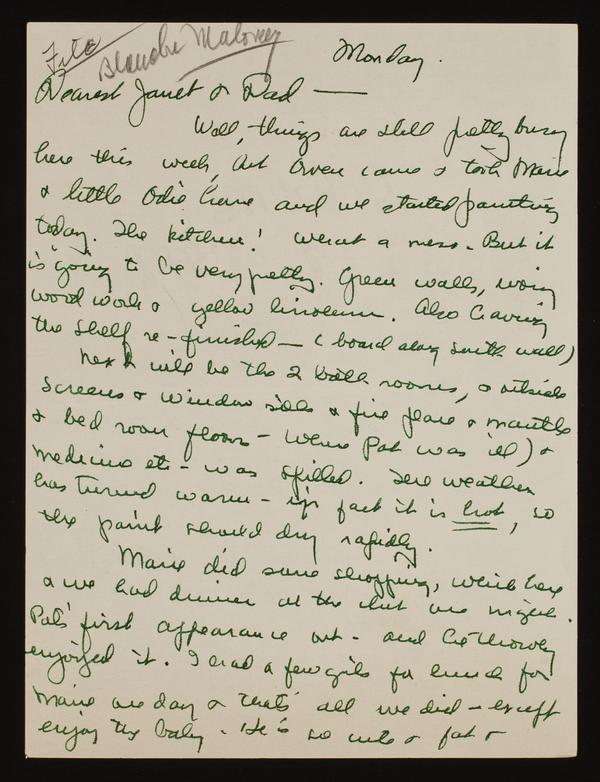 File
Blanche Maloney
Monday.
Dearest Janet & Dad —
Well, things are still pretty busy
here this week, but Owen came & took Marie
& little Odie home and we started painting
today. The kitchen! What a mess. But it
is going to be very pretty. Green walls, ivory
wood work & yellow linoleum. Also having
the shelf re-finished — (board along south wall)
Next will be the 2 bath rooms, & outside
screens & window sills & fire place & mantle
& bed room floor - where Pat was ill) &
medicine etc - was spilled. The weather
has turned warm - in fact it is hot, so
the paint should dry rapidly.
Marie did some shopping, while here
& we had dinner at the club one night.
Pat's first appearance out - and he thoroly
enjoyed it. I had a few girls for lunch for
Marie one day & that's all we did - except
enjoy the baby. He is so cute & fat &